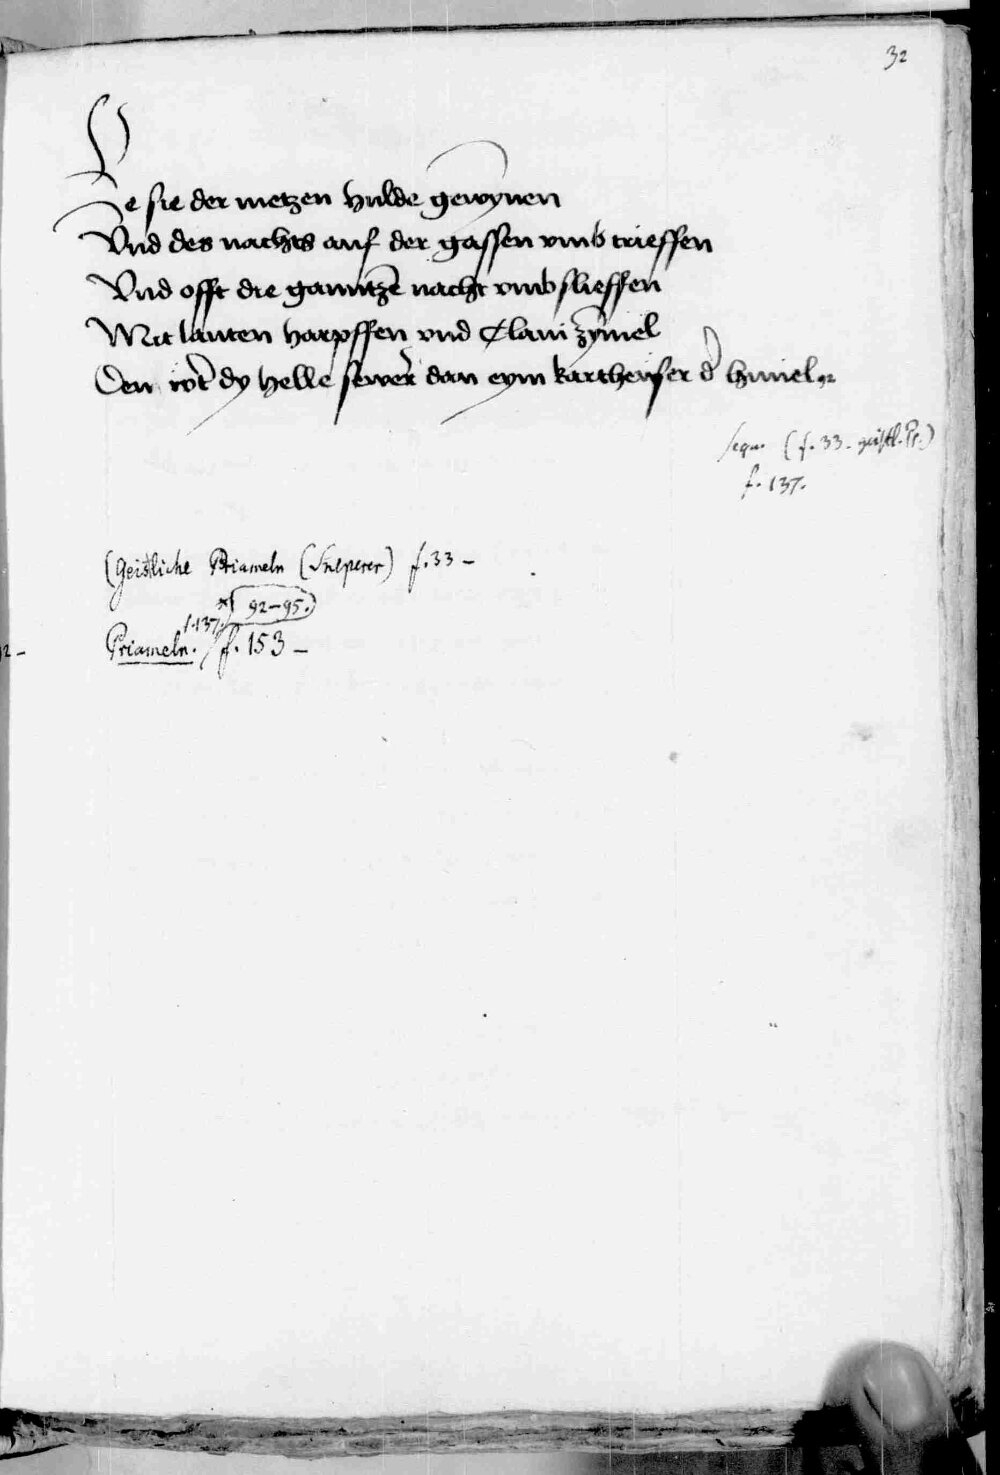 32
He sie der metzen hulde gewynen
Vnd des nachts auf der gassen vmb trieffen
Vnd offt die ganntze nacht vmb slieffen
Mit lauten harpffen vnd Clauizymel
Den wirt dy helle sewer dan eym kartheuser der himel
sequ. (f. 33. geistl. Pr.)
f. 137.
(Geistliche Priameln (Sneperer) f. 33 –
92–95.)
f. 137.
Priameln. f. 153 –